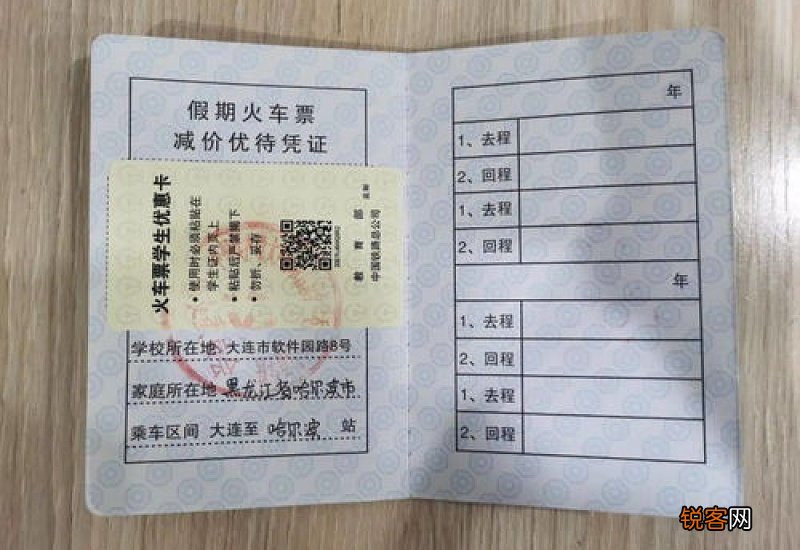 假期火车票
减价优待凭证
火车票学生优惠卡
• 使用时必须粘贴在
学生证内页上
• 粘贴后严禁揭下
• 勿折、妥存
教育部
中国铁路总公司
监制
学校所在地 大连市软件园路8号
家庭所在地 黑龙江省哈尔滨市
乘车区间 大连至 哈尔滨 站
年
1、去程
2、回程
1、去程
2、回程
年
1、去程
2、回程
1、去程
2、回程
锐客网